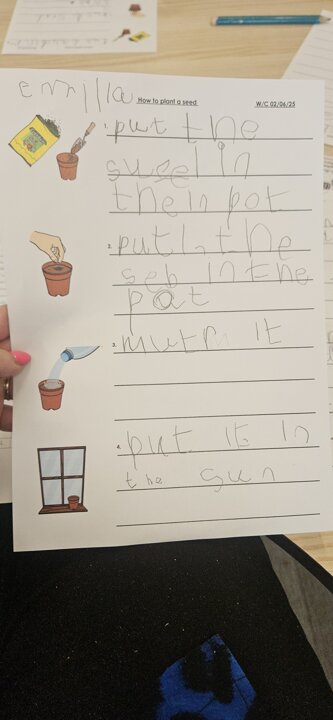 How to plant a seed
W/C 02/06/25
1. put the
in
the in pot
2. put in the
seb in the
pot
3. it
4. put it in
the sun